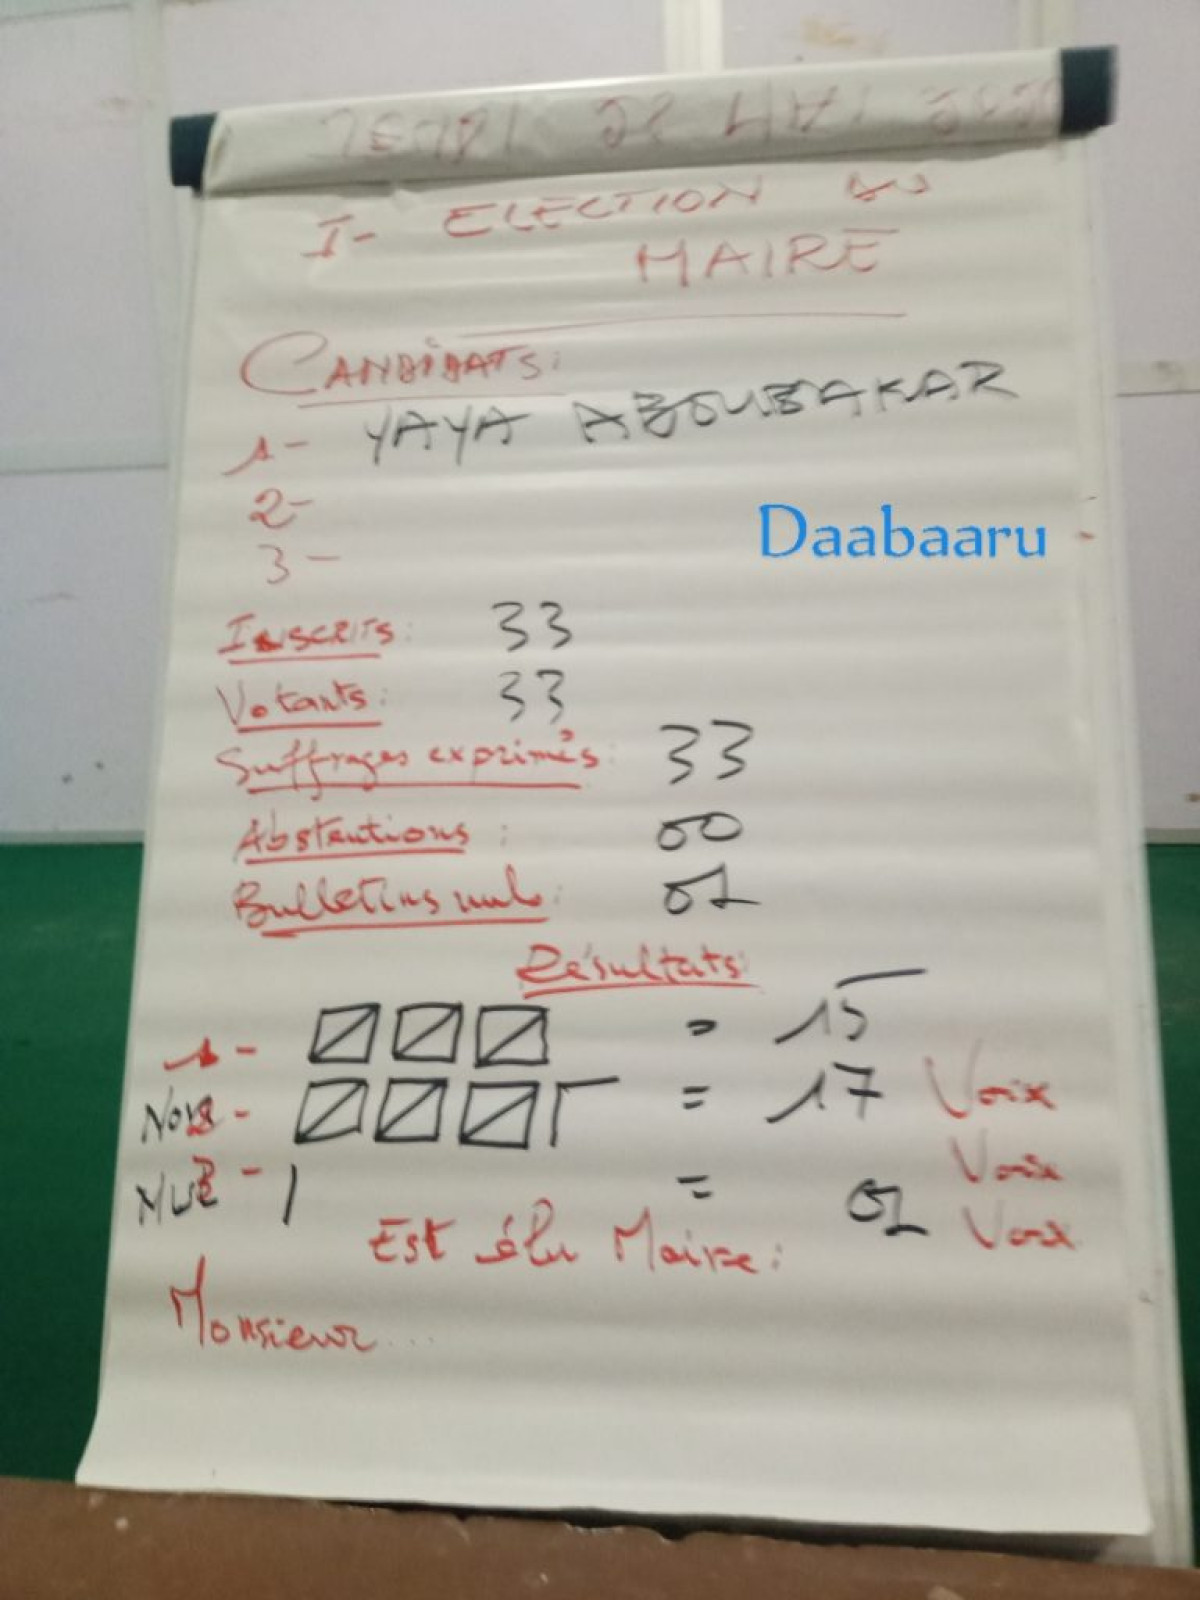 28 MAI 2020
I- ELECTION DU
MAIRE
CANDIDATS:
1- YAYA ABOUBAKAR
2-
3-
Daabaaru
INSCRITS: 33
Votants: 33
Suffrages exprimés: 33
Abstentions: 00
Bulletins nuls: 01
Résultats:
1- = 15
= 17 Voix
- I = 01 Voix
Voix
Est élu Maire:
Monsieur...